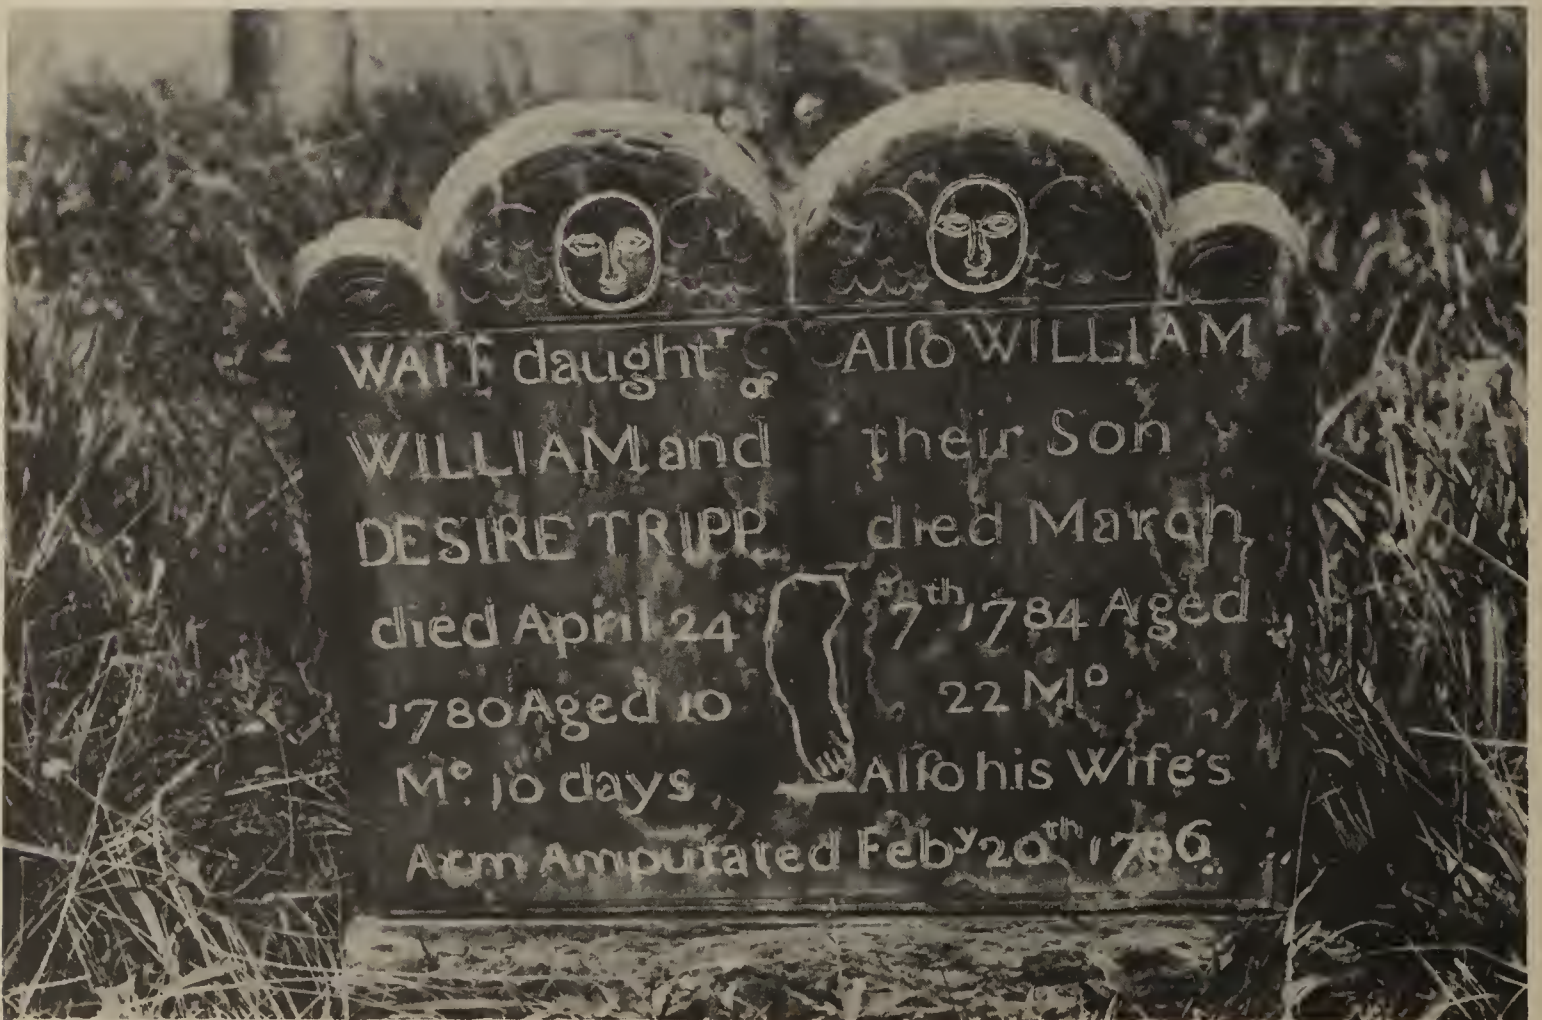 WAIT daughtr of
WILLIAM and
DESIRE TRIPP
died April 24
1780 Aged 10
Mo. 10 days
Alſo WILLIAM
their Son
died March
7th 1784 Aged
22 Mo
Alſo his Wife's
Arm Amputated Feby 20th 1786